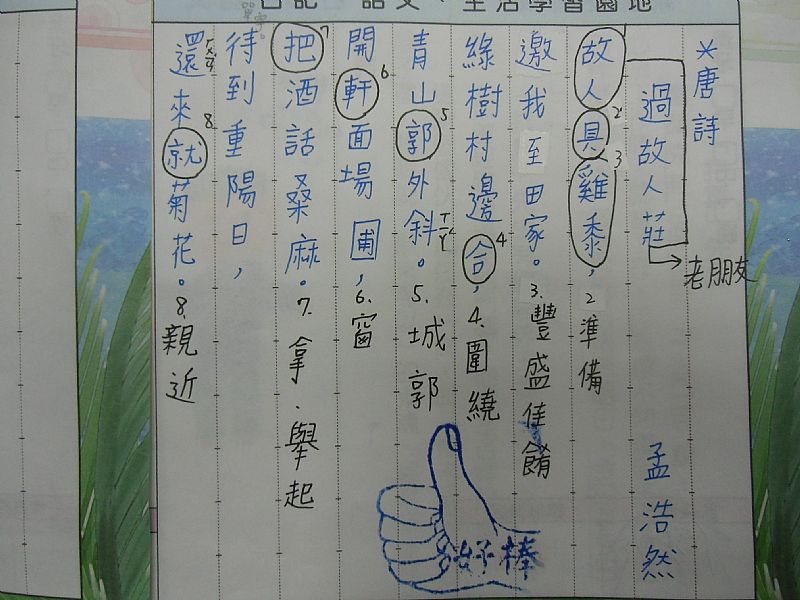 日記、語文、生活學習園地
*唐詩
過故人莊 孟浩然
老朋友
故人具2雞3黍，2準備
邀我至田家。3.豐盛佳餚
綠樹村邊合4，4.圍繞
青山郭5外斜ㄒㄧㄚˊ。5.城郭
開軒6面場圃，6.窗
把7酒話桑麻。7.拿、舉起
待到重陽日，
還來就8菊花。8.親近
好棒